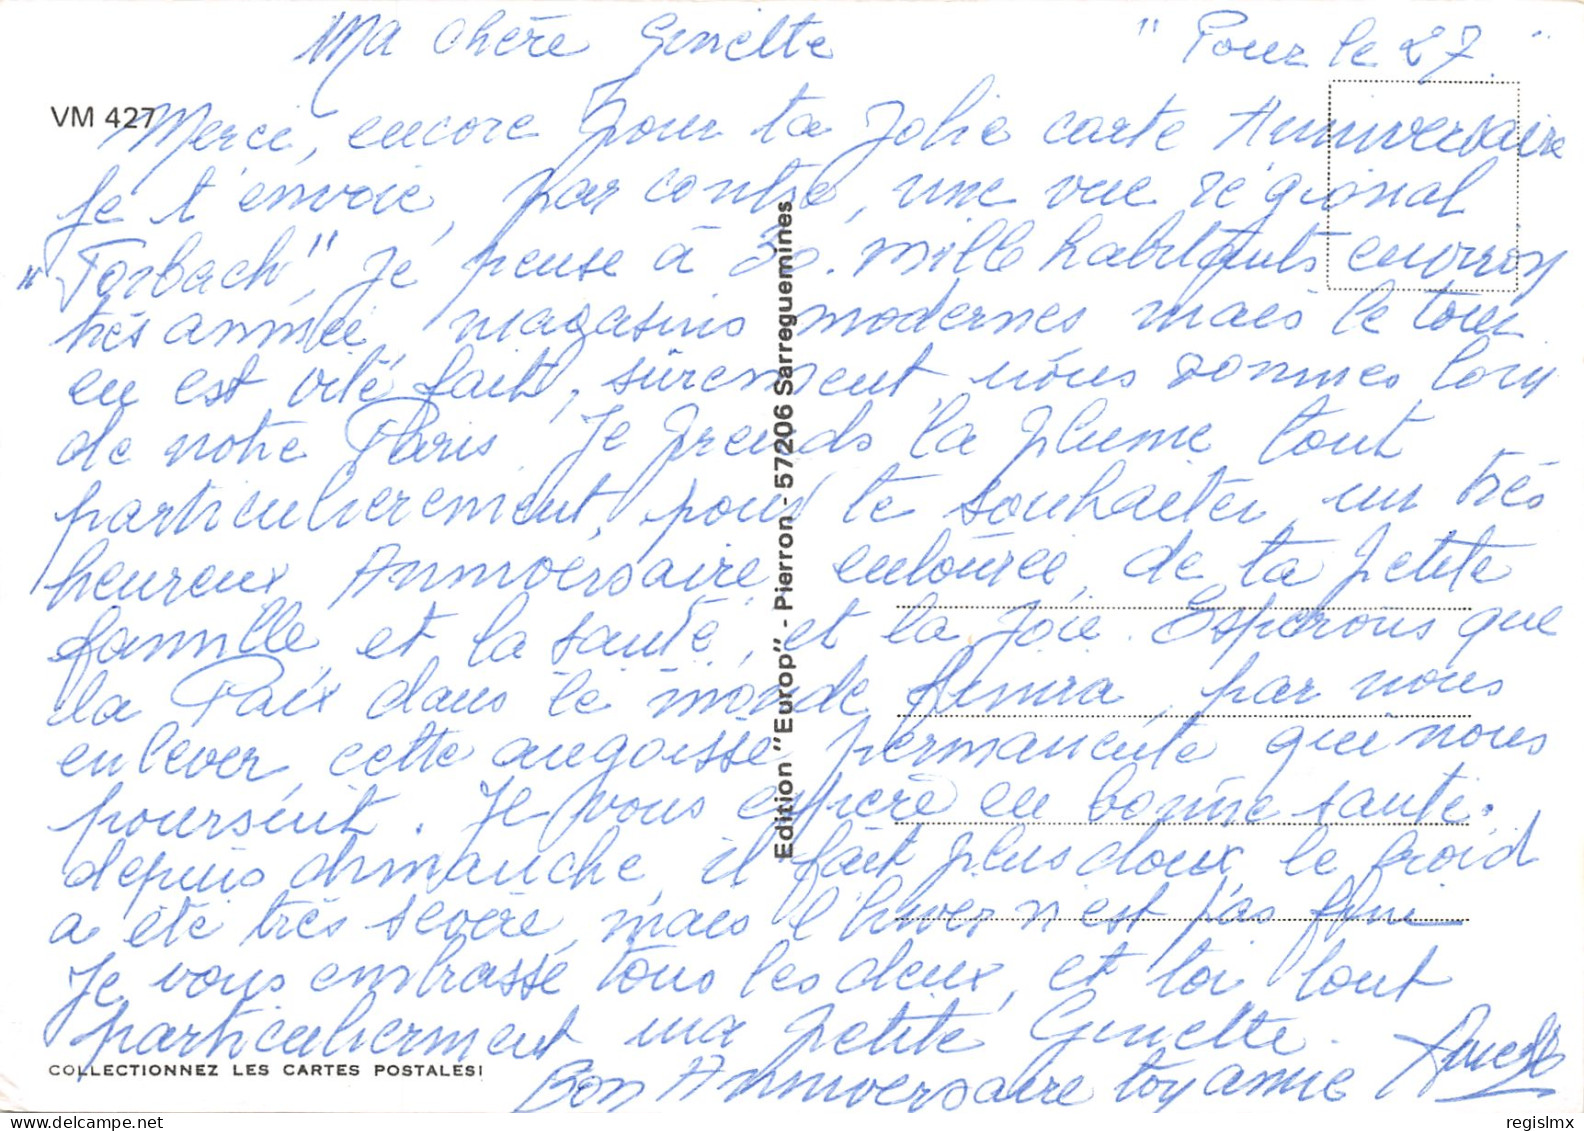 Ma chère Ginette " Pour le 27 "
VM 427
Merci, encore pour ta jolie carte Anniversaire
je t'envoie, par contre, une vue régional
"Forbach", je pense à 30. mille habitants environ
très année, magasins modernes mais le tour
en est vite fait, sûrement, nous sommes loin
de notre Paris. Je prends la plume tout
particulièrement, pour te souhaiter un très
heureux Anniversaire, entourée, de ta petite
famille, et la santé, et la joie. Espérons que
la Paix dans le monde finira, par nous
enlever, cette angoisse permanente qui nous
poursuit. Je vous espère en bonne santé.
depuis dimanche, il fait plus doux, le froid
a été très sévère, mais l'hiver n'est pas fini
Je vous embrasse tous les deux, et toi tout
particulièrement ma petite Ginette.
Bon Anniversaire ton amie
Edition "Europ" - Pierron - 57206 Sarreguemines
COLLECTIONNEZ LES CARTES POSTALES!
regislmx